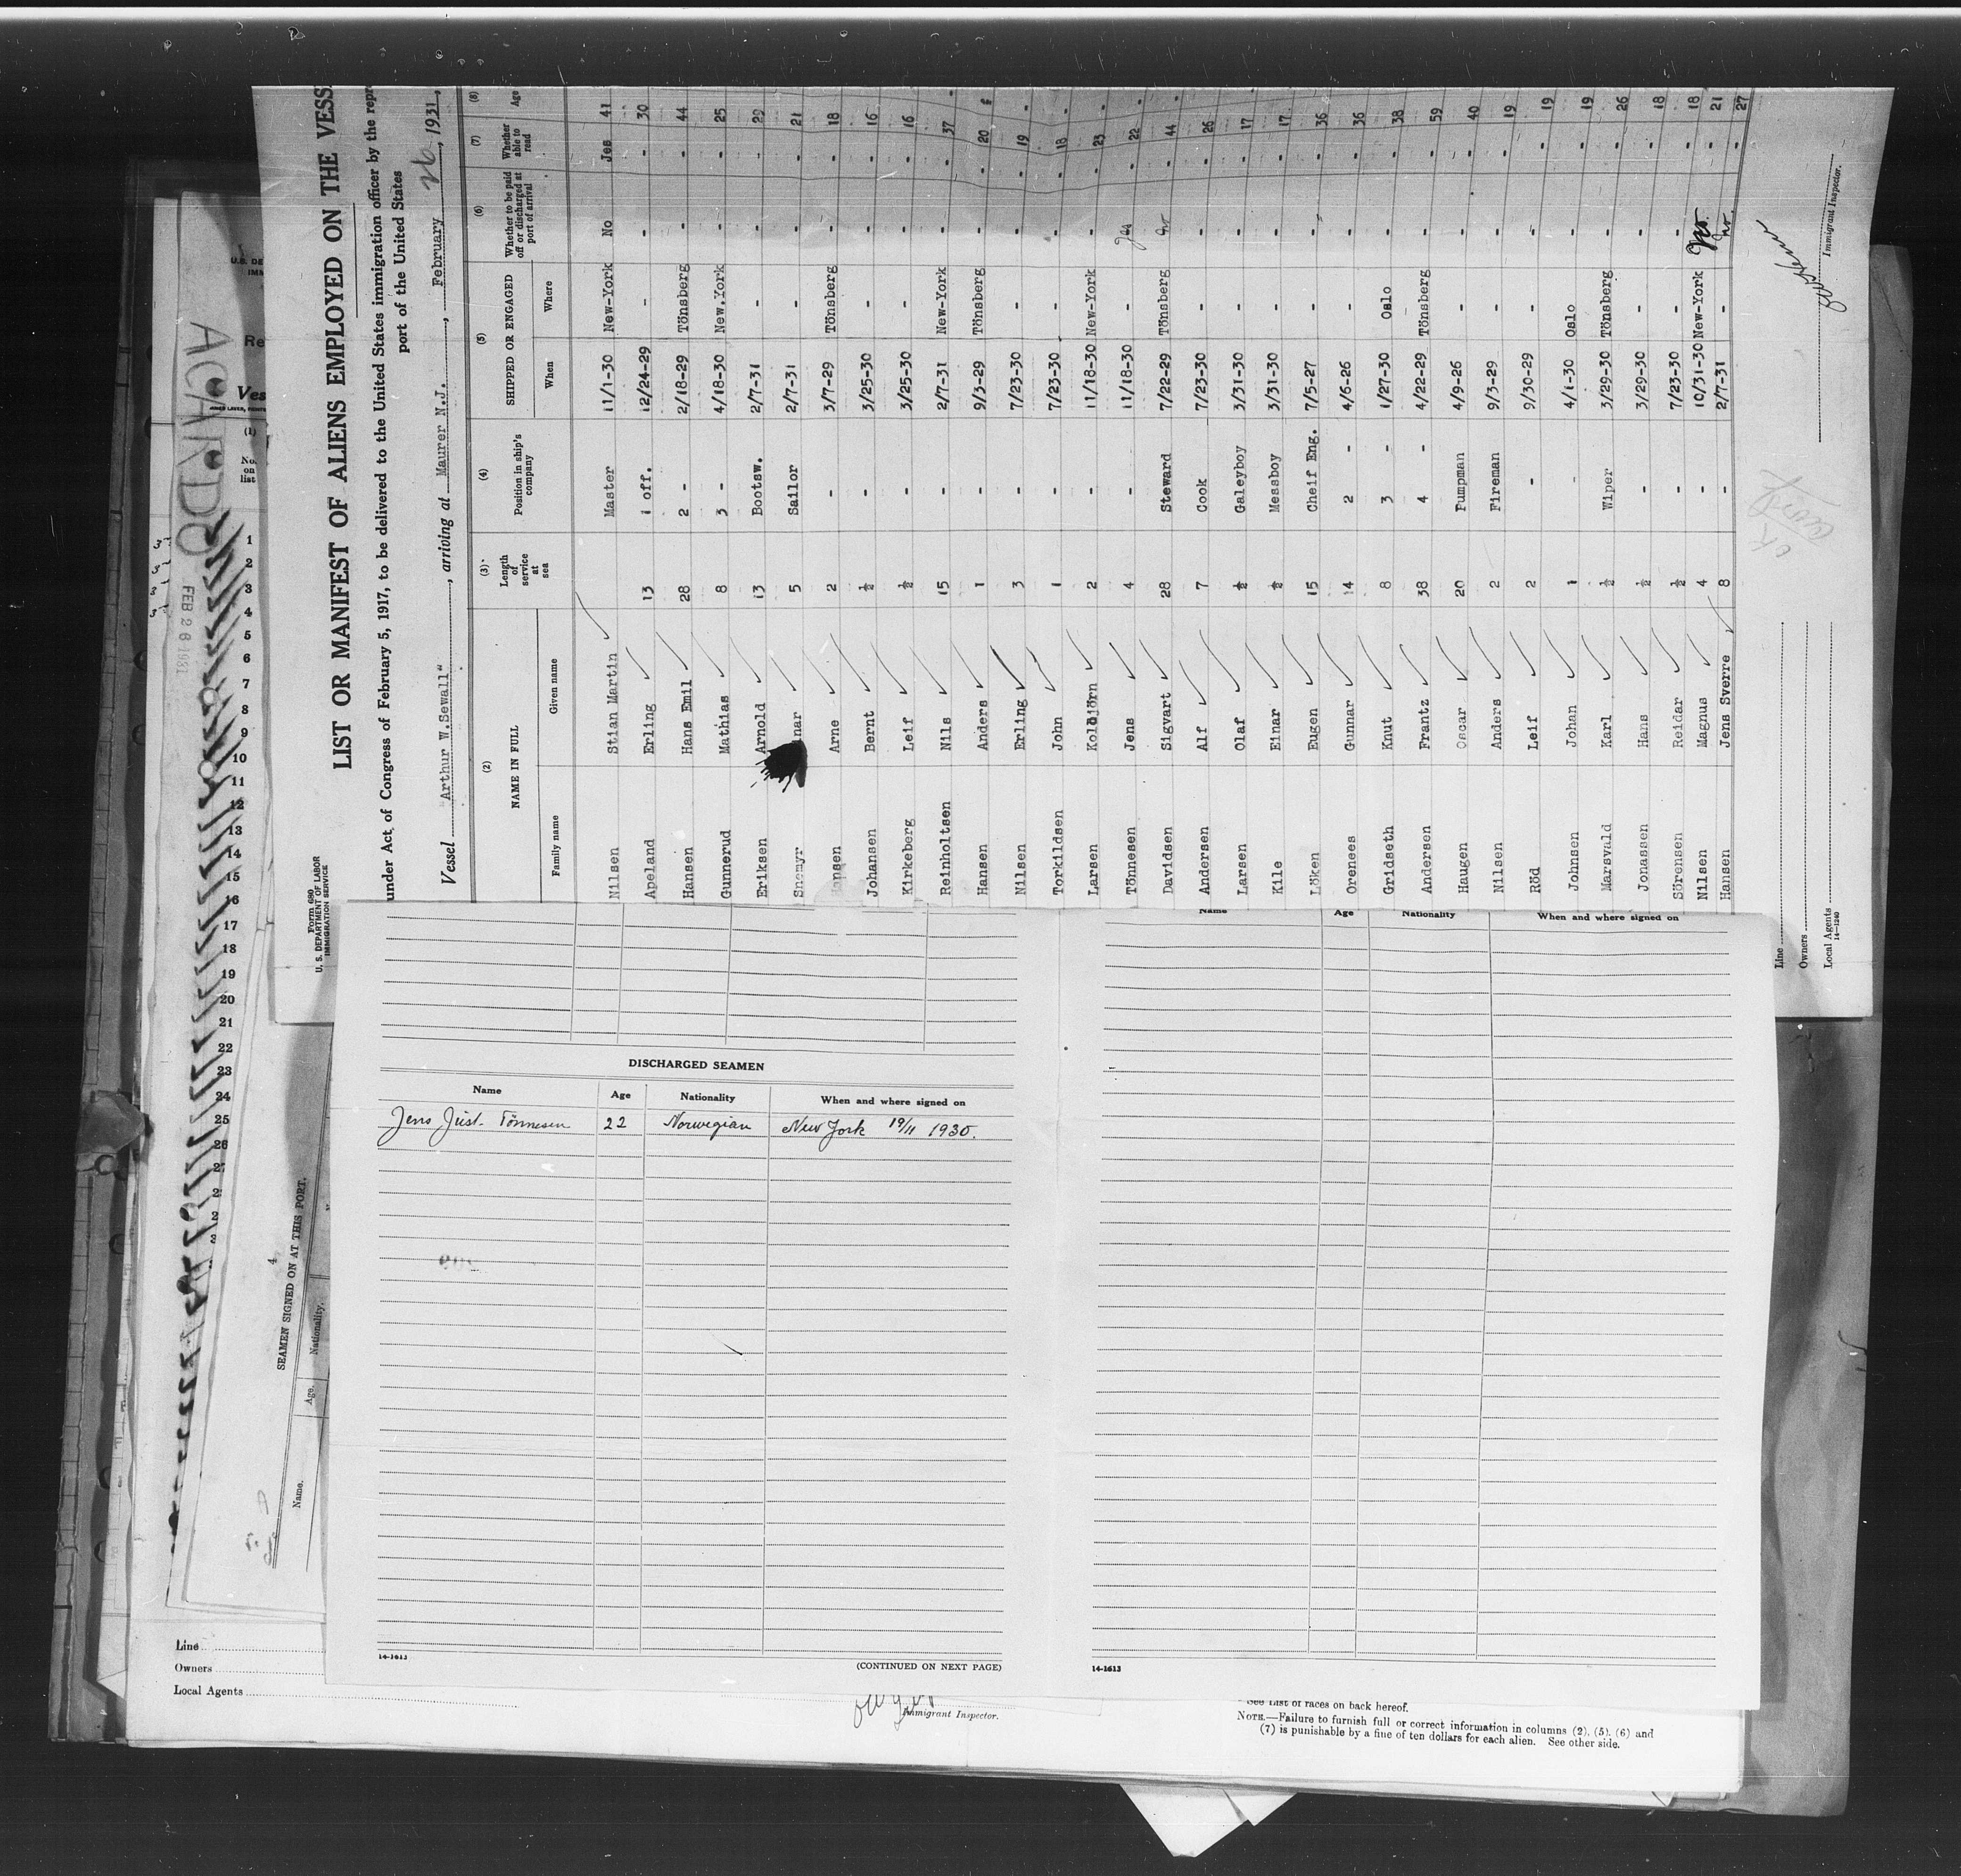 Form 680
U. S. DEPARTMENT OF LABOR
IMMIGRATION SERVICE
LIST OR MANIFEST OF ALIENS EMPLOYED ON THE VESS
under Act of Congress of February 5, 1917, to be delivered to the United States immigration officer by the repr
port of the United States
Vessel "Arthur W.Sewall", arriving at Maurer N.J., February 26, 1931,
(2) (3) (4) (5) (6) (7) (8)
NAME IN FULL Length of service at sea Position in ship's company SHIPPED OR ENGAGED Whether to be paid off or discharged at port of arrival Whether able to read Age
Family name Given name When Where
Nilsen Stian Martin Master 11/1-30 New-York No Jes 41
Apeland Erling 13 1 off. 12/24-29 - - - 30
Hansen Hans Emil 28 2 - 2/18-29 Tönsberg - - 44
Gunnerud Mathias 8 3 - 4/18-30 New.York - - 25
Eriksen Arnold 13 Bootsw. 2/7-31 - - - 29
Snemyr nar 5 Sailor 2/7-31 - - - 21
ansen Arne 2 - 3/7-29 Tönsberg - - 18
Johansen Bernt ½ - 3/25-30 - - - 16
Kirkeberg Leif ½ - 3/25-30 - - - 16
Reinholtsen Nils 15 - 2/7-31 New-York - - 37
Hansen Anders 1 - 9/3-29 Tönsberg - - 20
Nilsen Erling 3 - 7/23-30 - - - 19
Torkildsen John 1 - 7/23-30 - - - 18
Larsen Kolbjörn 2 - 11/18-30 New-York - - 23
Tönnesen Jens 4 - 11/18-30 - Yes - 22
Davidsen Sigvart 28 Steward 7/22-29 Tönsberg no - 44
Andersen Alf 7 Cook 7/23-30 - - - 26
Larsen Olaf ½ Galeyboy 3/31-30 - - - 17
Kile Einar ½ Messboy 3/31-30 - - - 17
Löken Eugen 15 Cheif Eng. 7/5-27 - - - 36
Orenees Gunnar 14 2 - 4/6-26 - - - 36
Gridseth Knut 8 3 - 1/27-30 Oslo - - 38
Andersen Frantz 38 4 - 4/22-29 Tönsberg - - 59
Haugen Oscar 20 Pumpman 4/9-26 - - - 40
Nilsen Anders 2 Fireman 9/3-29 - - - 19
Röd Leif 2 - 9/30-29 - - - 19
Johnsen Johan 1 - 4/1-30 Oslo - - 19
Marsvald Karl ½ Wiper 3/29-30 Tönsberg - - 26
Jonassen Hans ½ - 3/29-30 - - - 18
Sörensen Reidar ½ - 7/23-30 - - - 18
Nilsen Magnus 4 - 10/31-30 New-York No - 21
Hansen Jens Sverre 8 - 2/7-31 - no. - 27
Line
Owners
Local Agents
14-1240
Immigrant Inspector.
ACARDO
FEB 26 1931
Re
Ves
(1)
No. on list
1
2
3
4
5
6
7
8
9
10
11
12
13
14
15
16
17
18
19
20
21
22
23
24
25
26
4
SEAMEN SIGNED ON AT THIS PORT.
Name. Age. Nationality.
DISCHARGED SEAMEN
Name Age Nationality When and where signed on
Jens Just. Tönnesen 22 Norwegian New York 19/11 1930.
14-1613
(CONTINUED ON NEXT PAGE)
Name Age Nationality When and where signed on
14-1613
Line
Owners
Local Agents
Immigrant Inspector.
See List of races on back hereof.
NOTE.—Failure to furnish full or correct information in columns (2), (5), (6) and
(7) is punishable by a fine of ten dollars for each alien. See other side.